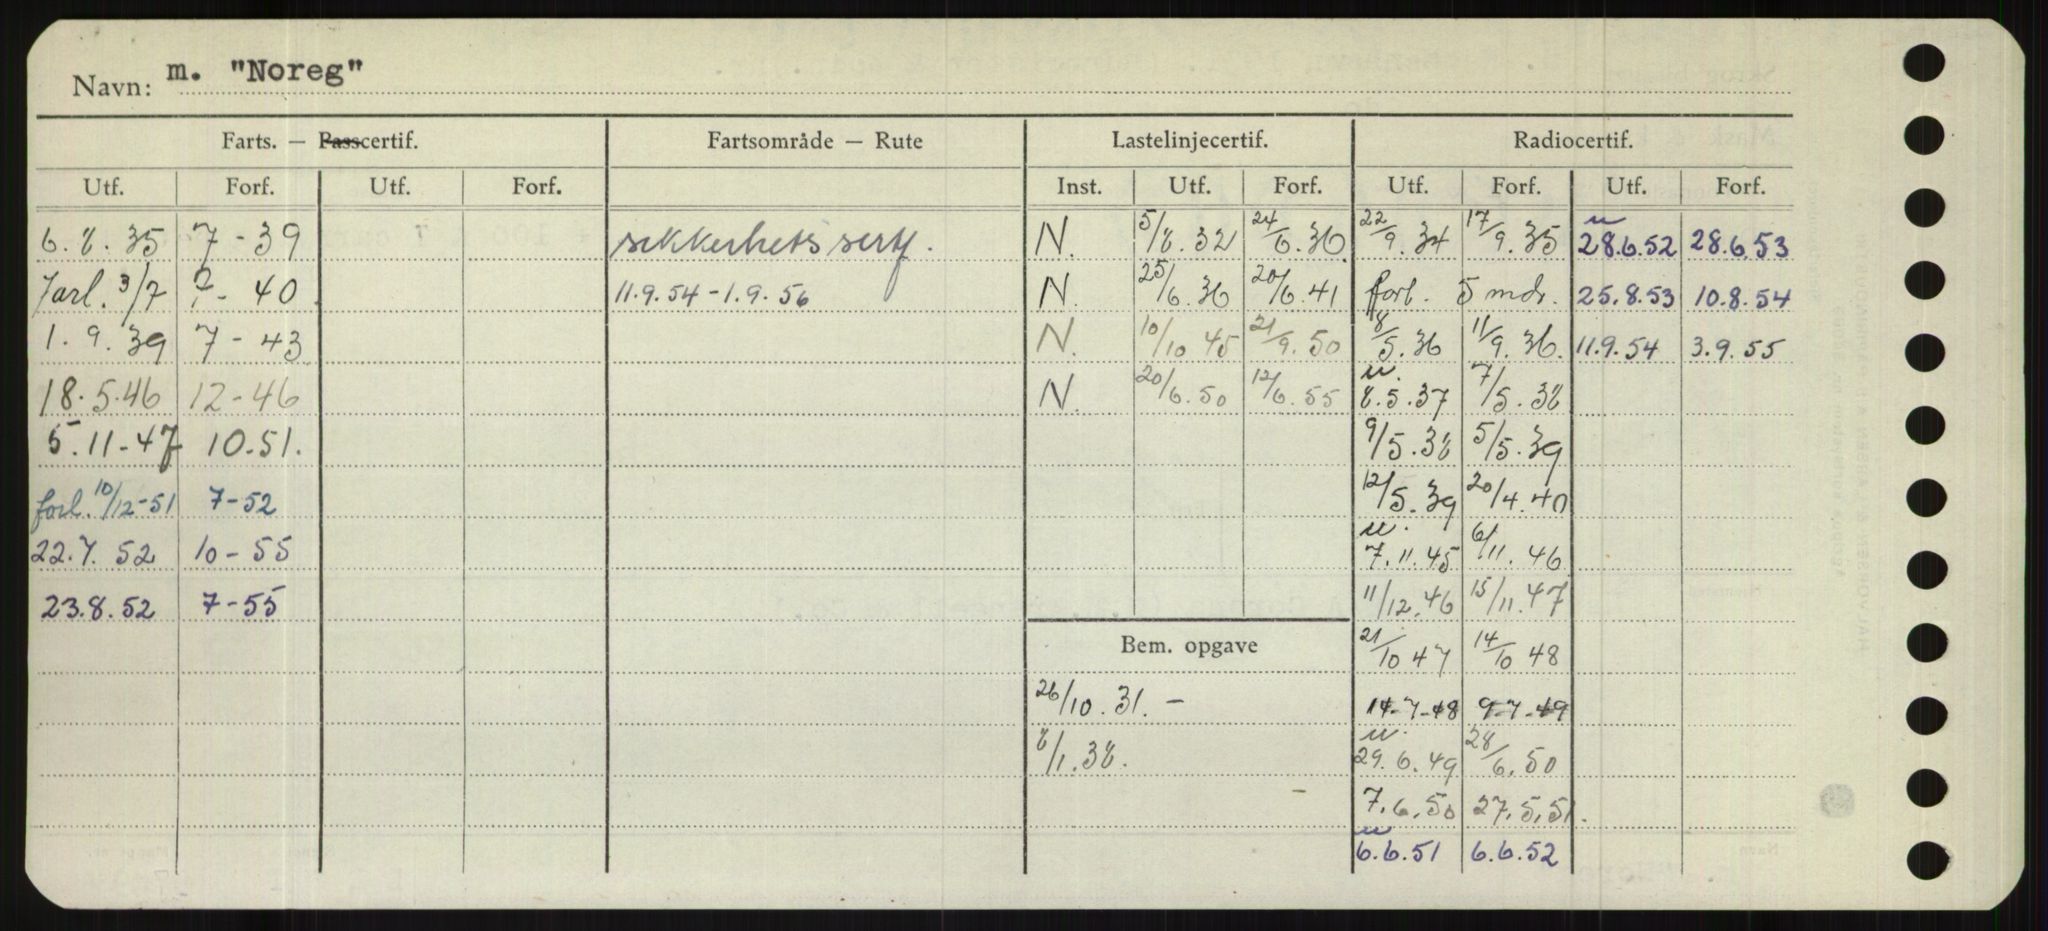 Navn: m. "Noreg"
Farts. — Passcertif. Fartsområde — Rute Lastelinjecertif. Radiocertif.
Utf. Forf. Utf. Forf. Inst. Utf. Forf. Utf. Forf. Utf. Forf.
6.8.35 7-39 sikkerhets sertf. N. 5/8.32 24/6.36 22/9.34 17/9.35 u 28.6.52 28.6.53
Forl. 3/7 7-40 11.9.54-1.9.56 N. 25/6.36 20/6.41 forl. 5 mdr. 25.8.53 10.8.54
1.9.39 7-43 N. 10/10 45 21/9.50 8/5.36 11/9.36. 11.9.54 3.9.55
18.5.46 12-46 N. 20/6.50 12/6.55 u. 8.5.37 7/5.38
5.11-47 10-51. 9/5.38 5/5.39
forl. 10/12-51 7-52 12/5.39 20/4.40
22.7.52 10-55 u. 7.11.45 6/11.46
23.8.52 7-55 11/12.46 15/11.47
Bem. opgave 21/10 47 14/10 48
26/10.31.- 14-7-48 9-7-49
8/1.38. u. 29.6.49 28/6.50
7.6.50 27.5.51.
u 6.6.51 6.6.52